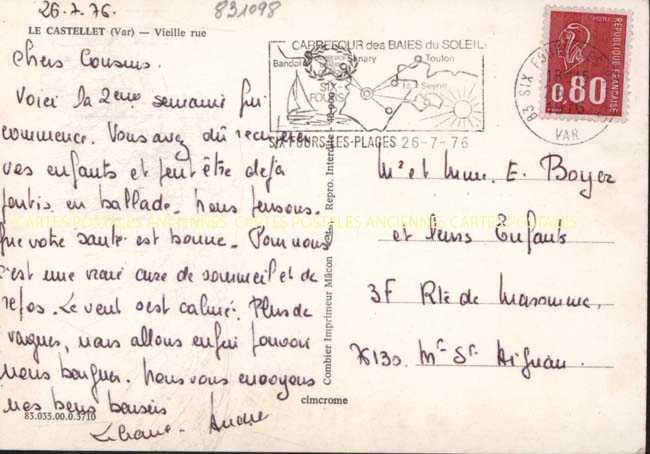 26.7.76.
831098
LE CASTELLET (Var) — Vieille rue
Chers Cousins.
Voici la 2ème semaine qui
commence. Vous avez dû récupérer
vos enfants et peut être déjà
partis, en ballade. Nous pensons.
que votre santé est bonne. Pour nous
c'est une vraie cure de sommeil et de
repos. Le vent s'est calmé. Plus de
vagues, nous allons enfin pouvoir
nous baigner. Nous vous envoyons
nos bons baisers
Liliane - André
83.035.00.0.3710
CARREFOUR des BAIES du SOLEIL
Bandol Sanary Toulon
SIX-FOURS la Seyne
SIX-FOURS-LES-PLAGES 26-7-76
83 SIX FOURS
VAR
REPUBLIQUE FRANÇAISE
0,80
Mr et Mme. E. Boyer
et leurs Enfants
3F Rte de
76130. Mt St Aignan.
Combier Imprimeur Mâcon
Repro. Interdite
cimcrome
CARTES POSTALES ANCIENNES CARTES POSTALES ANCIENNES CARTES POSTALES